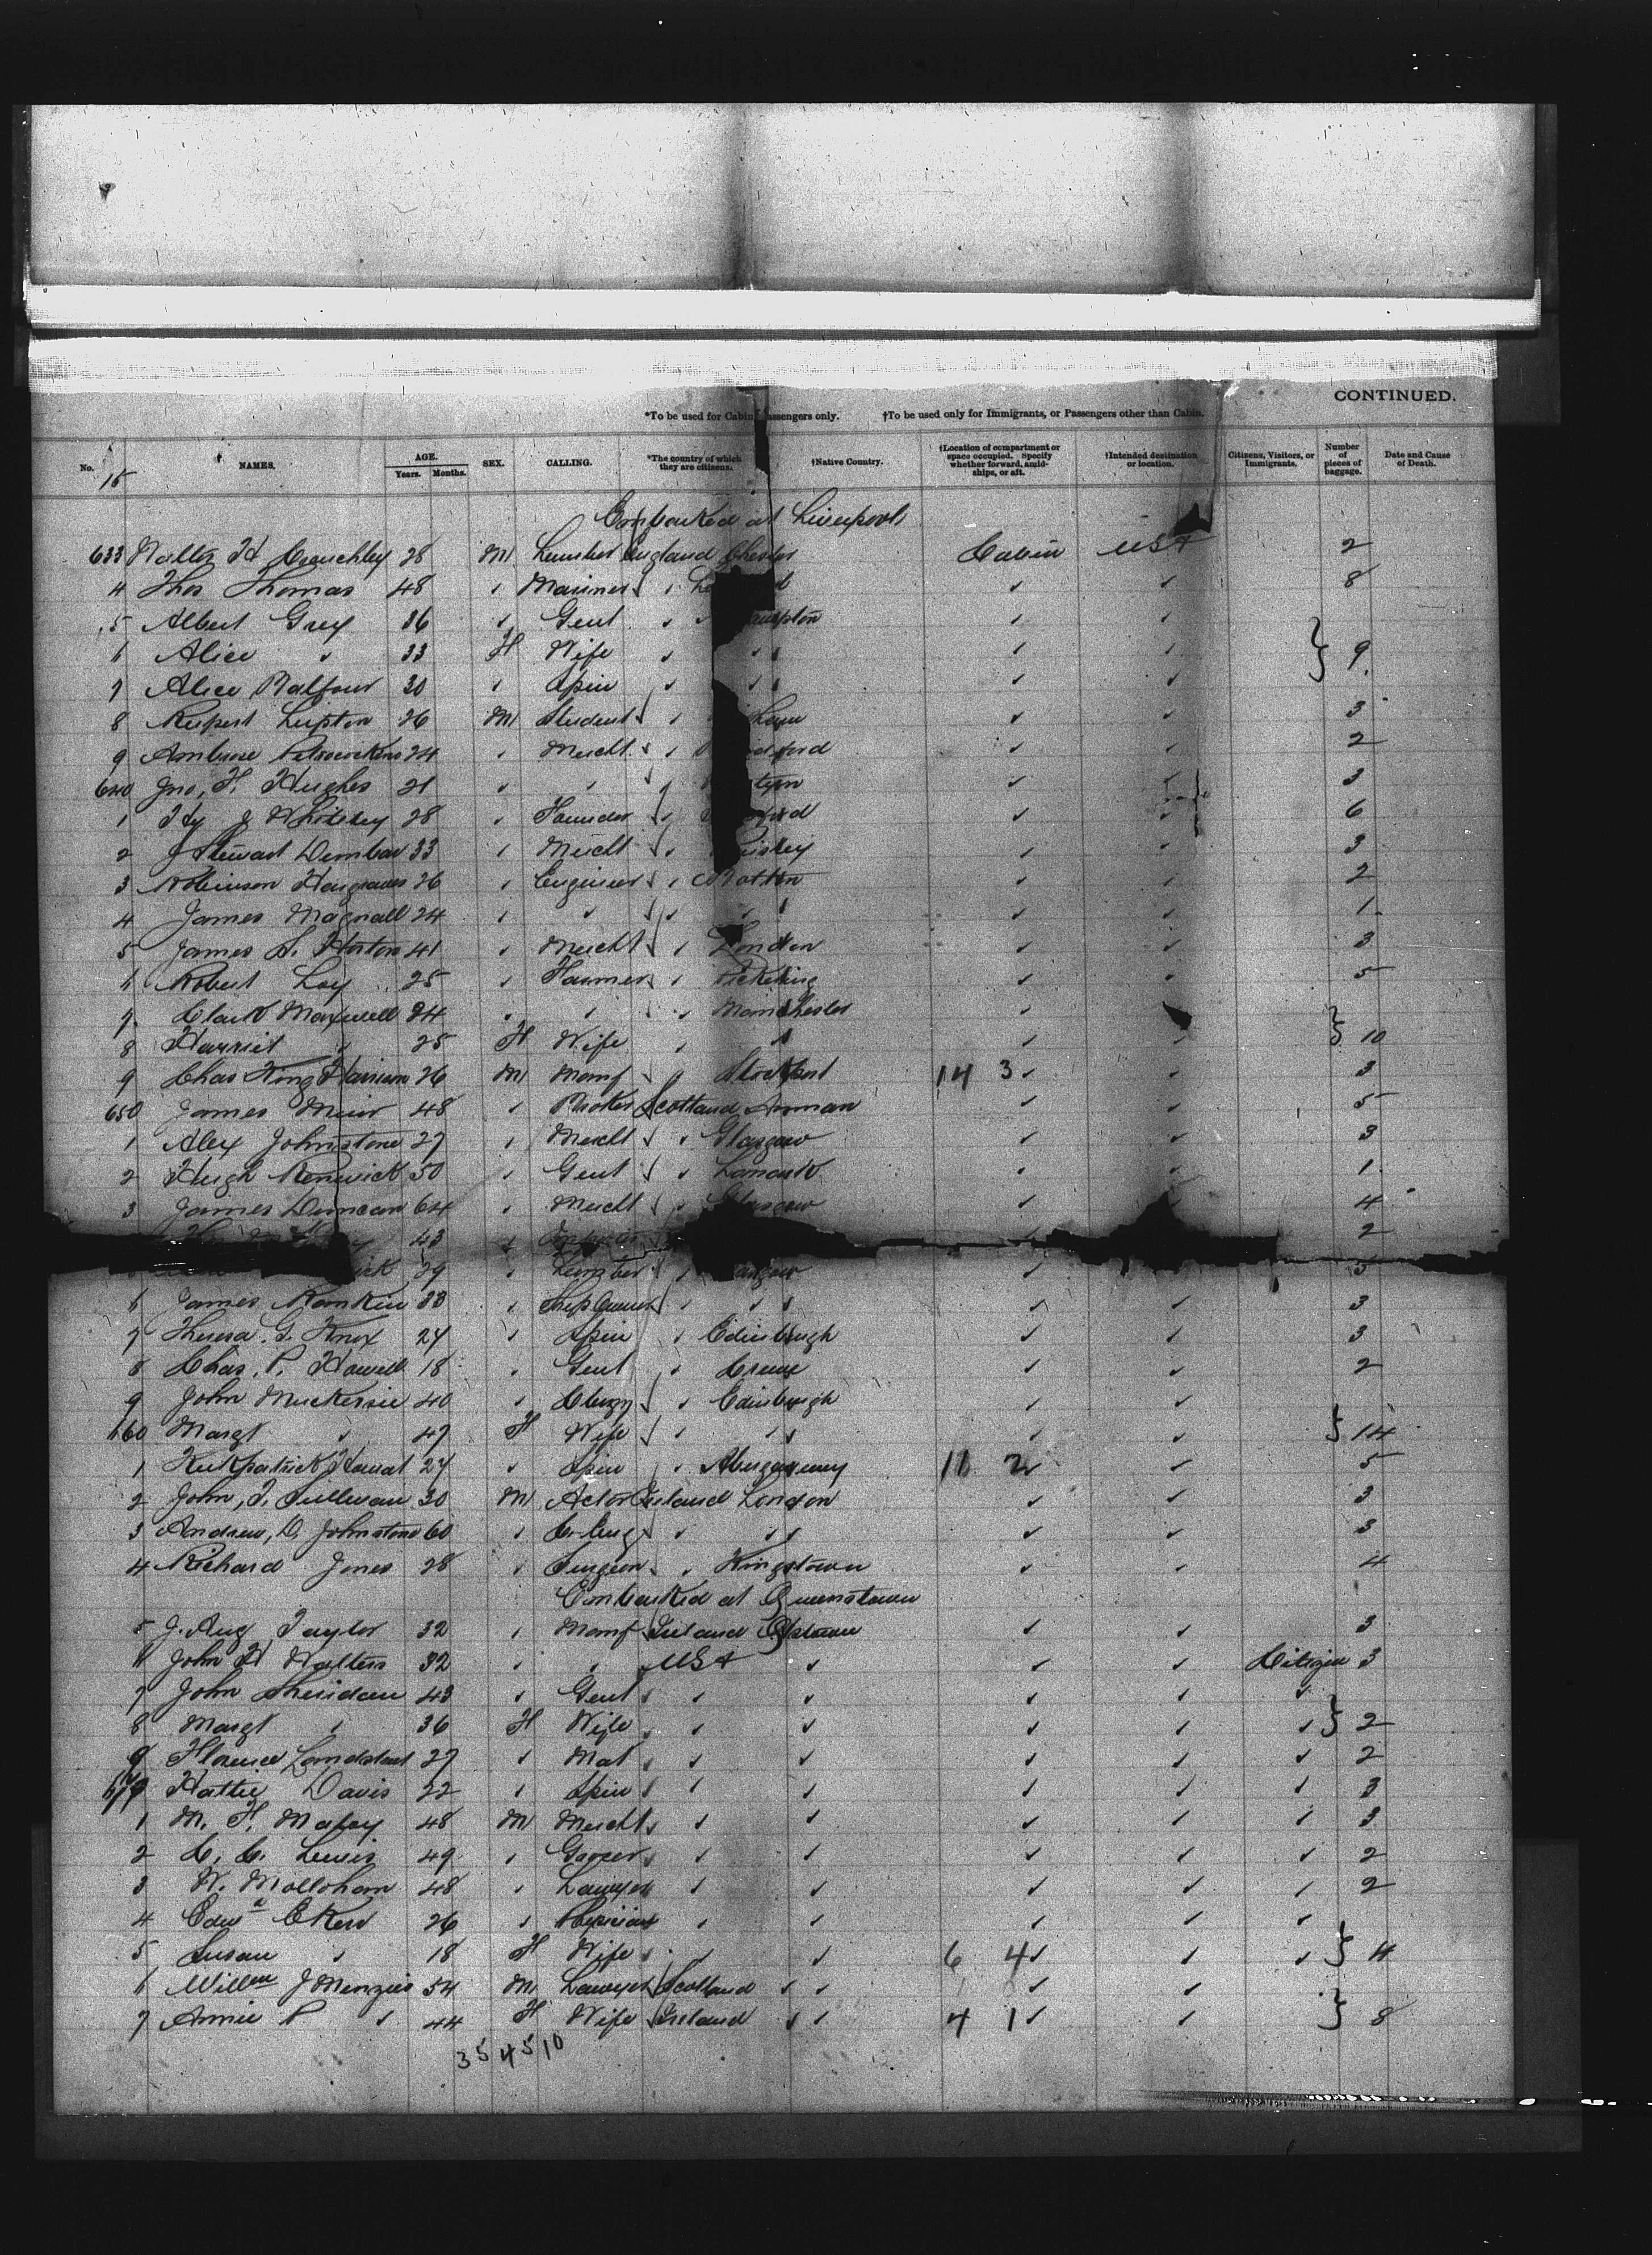 CONTINUED.
*To be used for Cabin Passengers only. †To be used only for Immigrants, or Passengers other than Cabin.
No. NAMES. AGE. Years. Months. SEX. CALLING. *The country of which they are citizens. †Native Country. †Location of compartment or space occupied. Specify whether forward, amidships, or aft. †Intended destination or location. Citizens, Visitors, or Immigrants. Number of pieces of baggage. Date and Cause of Death.
15
Embarked at Liverpool
633 Walter H 28 M England Chester Cabin USA 2
4 Thos Thomas 48 ✓ Mariner ✓ ✓ ✓ 8
5 Albert Grey 36 ✓ Gent ✓ ✓ ✓
6 Alice ✓ 33 F Wife ✓ ✓ ✓ ✓ ✓ } 9
7 Alice Balfour 30 ✓ Spin ✓ ✓ ✓ ✓ ✓
8 Rupert Lupton 26 M Student ✓ ✓ ✓ 3
9 Ambrose 24 ✓ Mercht ✓ ✓ ✓ 2
640 Jno, F. Hughes 21 ✓ ✓ ✓ ✓ 3
1 Hy J 28 ✓ Founder ✓ ✓ ✓ 6
2 J Stewart Dunbar 33 ✓ Mercht ✓ ✓ ✓ 3
3 Robinson Hargraves 26 ✓ Engineer ✓ ✓ ✓ 2
4 James Magnall 24 ✓ ✓ ✓ ✓ ✓ ✓ ✓ 1
5 James S. Horton 41 ✓ Mercht ✓ London ✓ ✓ 3
6 Robert Loy 25 ✓ Farmer ✓ Pickering ✓ ✓ 5
7 Clark Maxwell 24 ✓ ✓ ✓ Manchester ✓
8 Harriet ✓ 25 F Wife ✓ ✓ ✓ ✓ } 10
9 Chas King Harrison 26 M Manf ✓ Stockport 14 3 ✓ ✓ 3
650 James Muir 48 ✓ Broker Scotland Annan ✓ ✓ 5
1 Alex Johnstone 27 ✓ Mercht ✓ Glasgow ✓ ✓ 3
2 Hugh Renwick 50 ✓ Gent ✓ Lanark ✓ ✓ 1
3 James Duncan 64 ✓ Mercht ✓ Glasgow ✓ ✓ 4
43 ✓ 2
29 ✓ ✓
6 James Rankin 33 ✓ Ship Owner ✓ ✓ ✓ ✓ ✓ 3
7 Theresa. G. Knox 24 ✓ Spin ✓ Edinburgh ✓ ✓ 3
8 Chas. P. Howell 18 ✓ Gent ✓ Crewe ✓ ✓ 2
9 John Muckersie 40 ✓ Clergy ✓ Edinburgh ✓ ✓
660 Margt ✓ 47 F Wife ✓ ✓ ✓ ✓ ✓ } 14
1 Kirkpatrick 24 ✓ Spin ✓ Abergavenny 11 2 ✓ ✓ 5
2 John, T. Sullivan 30 M Actor Ireland London ✓ ✓ 3
3 Andrew, D, Johnstone 60 ✓ C. Eng ✓ ✓ ✓ ✓ ✓ 3
4 Richard Jones 28 ✓ Surgeon ✓ Kingstown ✓ ✓ 4
Embarked at Queenstown
5 J. Aug Taylor 32 ✓ Manf Ireland Qstown ✓ ✓ 3
6 John H Walters 32 ✓ ✓ USA ✓ ✓ ✓ Citizen 3
7 John Sheridan 43 ✓ Gent ✓ ✓ ✓ ✓ ✓
8 Margt ✓ 36 F Wife ✓ ✓ ✓ ✓ ✓ } 2
9 Florence 27 ✓ Mat ✓ ✓ ✓ ✓ ✓ 2
670 Hattie Davis 22 ✓ Spin ✓ ✓ ✓ ✓ ✓ 3
1 M. F. 48 M Mercht ✓ ✓ ✓ ✓ ✓ 3
2 C. C. Lewis 49 ✓ Grocer ✓ ✓ ✓ ✓ ✓ 2
3 W. Molloham 48 ✓ Lawyer ✓ ✓ ✓ ✓ ✓ 2
4 Edwd 26 ✓ Physician ✓ ✓ ✓ ✓ ✓
5 Susan ✓ 18 F Wife ✓ ✓ ✓ 6 4 ✓ ✓ ✓ } 4
6 Willm J Menzies 54 M Lawyer Scotland ✓ ✓ ✓ ✓
7 Annie P ✓ 44 F Wife Ireland ✓ ✓ 4 1 ✓ ✓ } 8
35 45 10